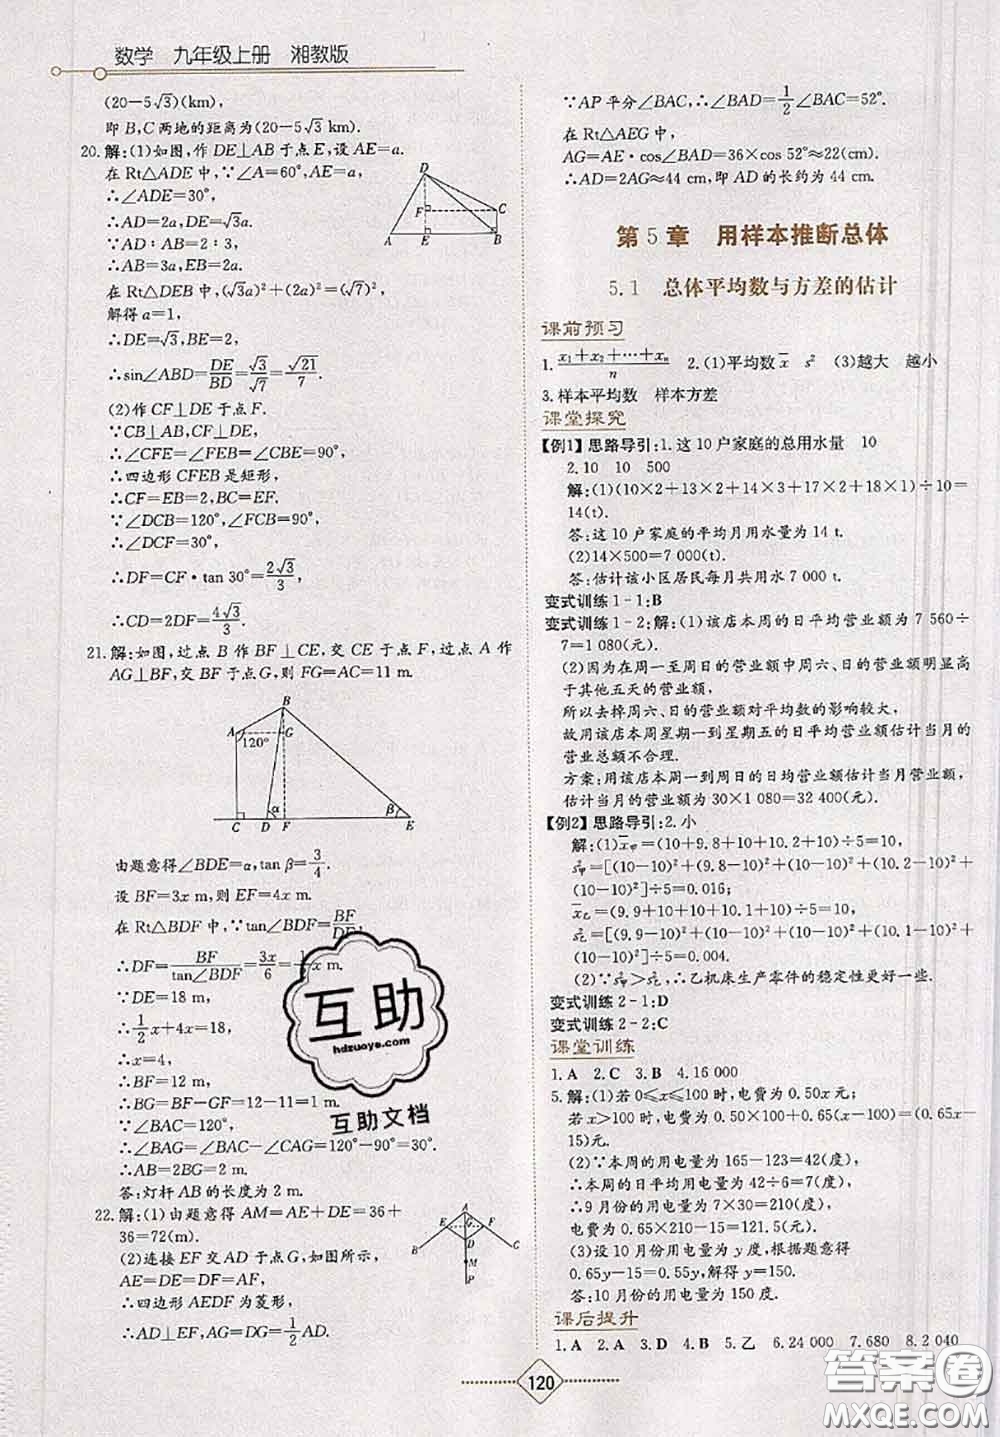 数学 九年级上册 湘教版
(20-5√3)(km),
即B,C两地的距离为(20-5√3 km).
20.解:(1)如图,作DE⊥AB于点E,设AE=a.
在Rt△ADE中,∵∠A=60°,AE=a,
∴∠ADE=30°,
∴AD=2a,DE=√3a.
∵AD∶AB=2∶3,
∴AB=3a,EB=2a.
在Rt△DEB中,(√3a)²+(2a)²=(√7)²,
解得a=1,
∴DE=√3,BE=2.
∴sin∠ABD=DE/BD=√3/√7=√21/7.
(2)作CF⊥DE于点F.
∵CB⊥AB,CF⊥DE,
∴∠CFE=∠FEB=∠CBE=90°,
∴四边形CFEB是矩形,
∴CF=EB=2,BC=EF.
∵∠DCB=120°,∠FCB=90°,
∴∠DCF=30°,
∴DF=CF·tan 30°=2√3/3,
∴CD=2DF=4√3/3.
21.解:如图,过点B作BF⊥CE,交CE于点F,过点A作
AG⊥BF,交BF于点G,则FG=AC=11 m.
B
A
120°
G
C D α F β E
由题意得∠BDE=α,tan β=3/4.
设BF=3x m,则EF=4x m.
在Rt△BDF中,∵tan∠BDF=BF/DF,
∴DF=BF/tan∠BDF=3x/6=1/2x m.
∵DE=18 m,
∴1/2x+4x=18.
∴x=4,
∴BF=12 m,
∴BG=BF-GF=12-11=1 m.
∵∠BAC=120°,
∴∠BAG=∠BAC-∠CAG=120°-90°=30°.
∴AB=2BG=2 m.
答:灯杆AB的长度为2 m.
22.解:(1)由题意得AM=AE+DE=36+
36=72(m).
(2)连接EF交AD于点G,如图所示,
AE=DE=DF=AF=36.
∴四边形AEDF为菱形,
∴AD⊥EF,AG=DG=1/2AD.
∵AP平分∠BAC,∴∠BAD=1/2∠BAC=52°.
在Rt△AEG中,
AG=AE·cos∠BAD=36×cos 52°≈22(cm).
∴AD=2AG≈44 cm,即AD的长约为44 cm.
第5章 用样本推断总体
5.1 总体平均数与方差的估计
课前预习
1.x₁+x₂+…+xₙ/n 2.(1)平均数x̄ s² (3)越大 越小
3.样本平均数 样本方差
课堂探究
【例1】思路导引:1.这10户家庭的总用水量 10
2.10 10 500
解:(1)(10×2+13×2+14×3+17×2+18×1)÷10=
14(t).
答:这10户家庭的平均月用水量为14 t.
(2)14×500=7 000(t).
答:估计该小区居民每月共用水7 000 t.
变式训练1-1:B
变式训练1-2:解:(1)该店本周的日平均营业额为7 560÷
7=1 080(元).
(2)因为在周一至周日的营业额中周六、日的营业额明显高
于其他五天的营业额,
所以去掉周六、日的营业额对平均数的影响较大,
故用该店本周星期一到星期五的日平均营业额估计当月的
营业总额不合理.
方案:用该店本周一到周日的日均营业额估计当月营业额,
估计当月的营业额为30×1 080=32 400(元).
【例2】思路导引:2.小
解:(1)x̄甲=(10+9.8+10+10.2+10)÷5=10,
s²甲=[(10-10)²+(9.8-10)²+(10-10)²+(10.2-10)²+
(10-10)²]÷5=0.016;
x̄乙=(9.9+10+10+10.1+10)÷5=10,
s²乙=[(9.9-10)²+(10-10)²+(10-10)²+(10.1-10)²+
(10-10)²]÷5=0.004.
(2)∵s²甲>s²乙,∴乙机床生产零件的稳定性更好一些.
变式训练2-1:D
变式训练2-2:C
课堂训练
1.A 2.C 3.B 4.16 000
5.解:(1)若0≤x≤100时,电费为0.50x元;
若x>100时,电费为0.50×100+0.65(x-100)=(0.65x-
15)元.
(2)∵本周的用电量为165-123=42(度),
∴本周的日平均用电量为42÷6=7(度),
∴9月份的用电量为7×30=210(度),
电费为0.65×210-15=121.5(元).
(3)设10月份用电量为y度,根据题意得
0.65y-15=0.55y,解得y=150.
答:10月份的用电量为150度.
课后提升
1.A 2.A 3.D 4.B 5.乙 6.24 000 7.680 8.2 040
120
互助
hdzuoye.com
互助文档
答案圈
MXQE.COM